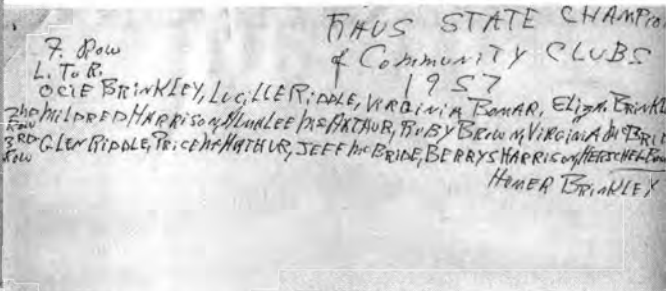 STATE CHAMPIO
of COMMUNITY CLUBS
1957
F. Row
L. To R.
OCIE BRINKLEY, LUCILLE RIDDLE, VIRGINIA BOMAR, ELIZA. BRINKL
2nd Row MILDRED HARRISON, ALMALEE McARTHUR, RUBY BROWN, VIRGINIA McBRI
3RD Row GLEN RIDDLE, PRICE McARTHUR, JEFF McBRIDE, BERRYS HARRISON, HERSCHEL BO
HOMER BRINKLEY